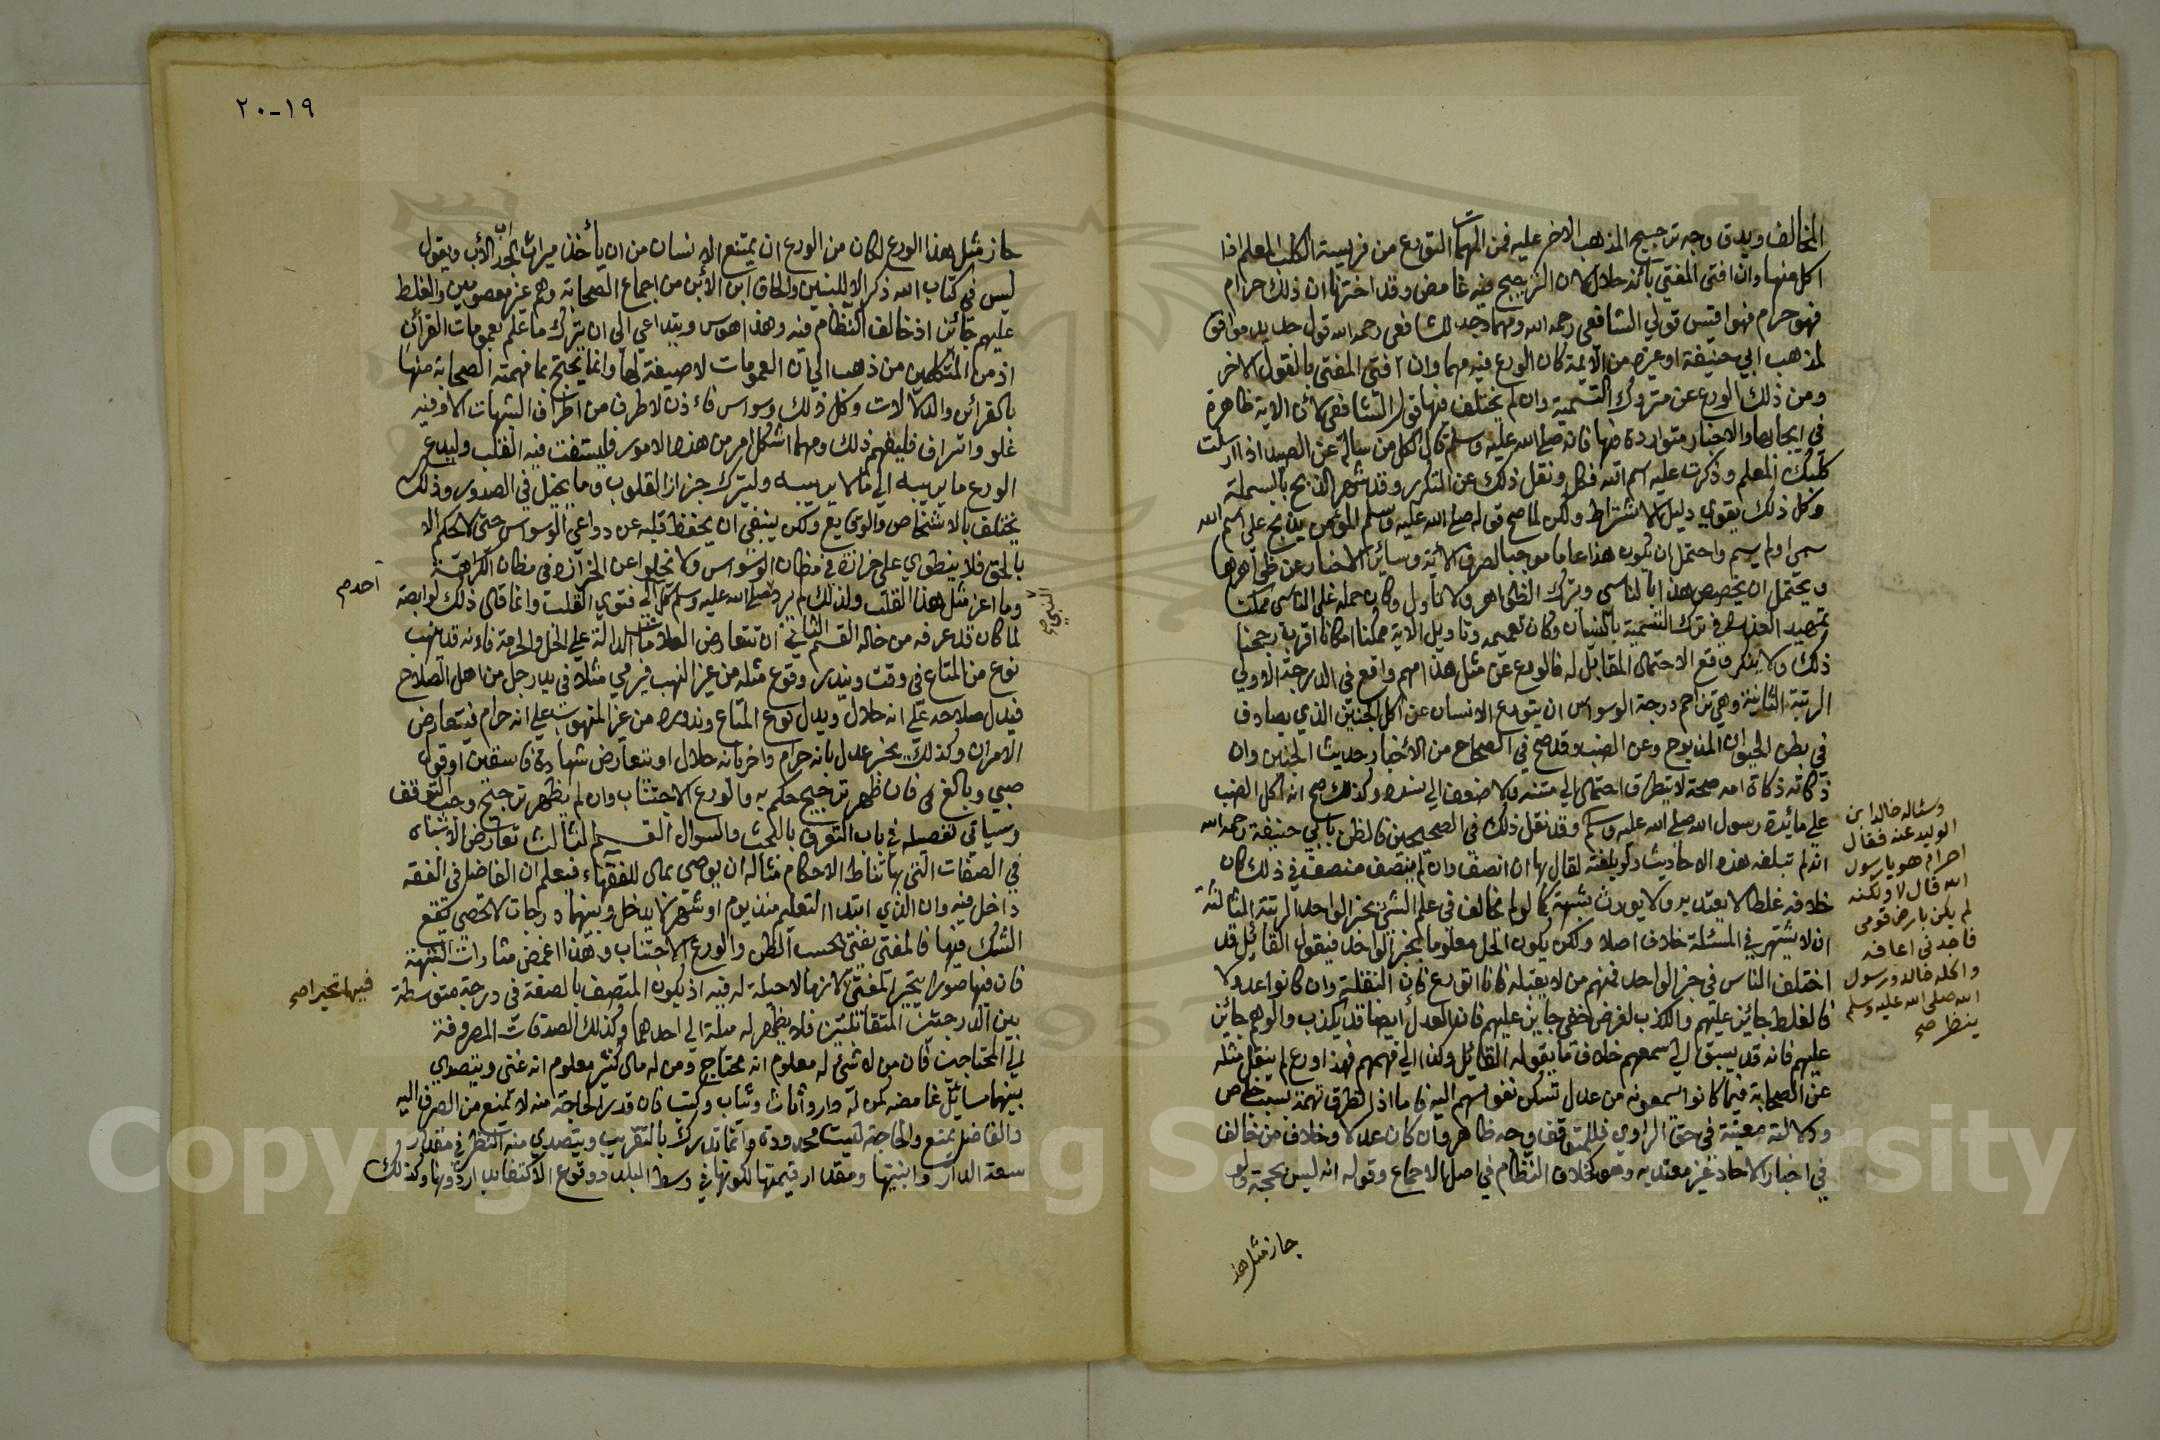 المخالف ويدق وجه ترجيح المذهب الاخر عليه فمن المهمات التورع من فريسة الكلب المعلم اذا
اكل منها وان افتى المفتي بانه حلال لان الترجيح فيه غامض وقد اخترنا ان ذلك حرام
فهو حرام فهو اقيس قولي الشافعي رحمه الله ومهما وجد للشافعي رحمه الله قول جديد موافق
لمذهب ابي حنيفة او غيره من الائمة كان الورع فيه مهما وان افتى المفتي بالقول الاخر
ومن ذلك الورع عن متروك التسمية وان لم يختلف فيها قول الشافعي لان الاية ظاهرة
في ايجابها والاخبار متواردة فيها فانه صلى الله عليه وسلم قال لكل من سأله عن الصيد اذا ارسلت
كلبك المعلم وذكرت عليه اسم الله فكل ونقل ذلك عن التكرر وقد شهر الذبح بالبسملة
وكل ذلك يقوي دليل الاشتراط ولكن لما صح قوله صلى الله عليه وسلم المؤمن يذبح على اسم الله
سمى او لم يسم واحتمل ان يكون هذا عاما موجبا لصرف الاية وسائر الاخبار عن ظواهرها
ويحتمل ان يخصص هذا بالناسي ويترك الظواهر ولا تاول وكان حمله على الناسي ممكنا
تمهيد العذره في ترك التسمية بالنسيان وكان تعميمه وتاويل الاية ممكنا امكانا اقرب رجحنا
ذلك ولا ينكر وقع الاحتمال المقابل له فالورع عن مثل هذا مهم واقع في الدرجة الاولى
الرتبة الثانية وهي تزاحم درجة الوسواس ان يتورع الانسان عن اكل الجنين الذي يصادف
في بطن الحيوان المذبوح وعن الضب وقد صح في الصحاح من الاخبار حديث الجنين وان
ذكاته ذكاة امه صحة لا يتطرق احتمال الى متنه ولا ضعف الى سنده وكذلك صح انه اكل الضب
على مائدة رسول الله صلى الله عليه وسلم وقد نقل ذلك في الصحيحين فالظن بابي حنيفة رحمه الله
انه لم تبلغه هذه الاحاديث ولو بلغته لقال بها ان انصف وان لم ينصف منصف في ذلك كان
خلافه غلطا لا يعتد به ولا يورث شبهة كما لو لم يخالف في علم الشيء بخبر الواحد الرتبة الثالثة
ان لا يشتهر في المسئلة خلاف اصلا ولكن يكون الحل معلوما بخبر الواحد فيقول القائل قد
اختلف الناس في خبر الواحد فمنهم من لا يقبله فانا اتورع فان النقلة وان كانوا عدولا
فالغلط جائز عليهم والكذب لغرض خفي جايز عليهم فان العدل ايضا قد يكذب والوهم جائز
عليهم فانه قد يسبق الى سمعهم خلاف ما يقوله القائل وكذا الى فهمهم فهذا ورع لم ينقل مثله
عن الصحابة فيما كانوا يسمعونه من عدل تسكن نفوسهم اليه فاما اذا تطرق تهمة بسبب خاص
ودلالة معينة في حق الراوي فللتوقف وجه ظاهر وان كان عدلا وخلاف من خالف
في اخبار الاحاد غير معتد به وهو كخلاف النظام في اصل الاجماع وقوله انه ليس بحجة ولو
جاز مثل هذا
وسئاله خالد ابن
الوليد عنه فقال
احرام هو يا رسول
الله قال لا ولكنه
لم يكن بارض قومي
فاجدني اعافه
واكله خالد ورسول
الله صلى الله عليه وسلم
ينظر صح
١٩-٢٠
جاز مثل هذا الورع لكان من الورع ان يمتنع الانسان من ان يأخذ ميراث الجد اب الأب ويقول
ليس في كتاب الله ذكر الا للبنين والحاق ابن الابن من اجماع الصحابة وهم غير معصومين والغلط
عليهم جائز اذ خالف النظام فيه وهذا هوس ويتداعي الى ان يترك ما علم بعمومات القرآن
اذ من المتكلمين من ذهب الى ان العمومات لا صيغة لها وانما يحتج بما فهمته الصحابة منها
بالقرائن والدلالات وكل ذلك وسواس فاذن لا طرف من اطراف الشبهات الا وفيه
غلو واسراف فليفهم ذلك ومهما اشكل امر من هذه الامور فليستفت فيه القلب وليدع
الورع ما يريبه الى ما لا يريبه وليترك حزاز القلوب وما يحيك في الصدور وذلك
يختلف بالاشخاص والوقايع ولكن ينبغي ان يحفظ قلبه عن دواعي الوسواس حتى لا يحكم الا
بالحق فلا ينطوي على حزازة في مظان الوسواس ولا يخلوا عن الحزازة في مظان الكراهة
وما اعز مثل هذا القلب ولذلك لم يرد صلى الله عليه وسلم كل الى فتوى القلب وانما قال ذلك لوابصة
لما كان قد عرفه من حاله القسم الثاني ان تتعارض العلامات الدالة على الحل والحرمة فانه قد ينهب
نوع من المتاع في وقت ويندر وقوع مثله من غير النهب فيرمى مثلا في يد رجل من اهل الصلاح
فيدل صلاحه على انه حلال ويدل نوع المتاع وندوره من غير المنهوب على انه حرام فيتعارض
الامران وكذلك يخبر عدل بانه حرام واخر بانه حلال او تتعارض شهادة فاسقين او قول
صبي وبالغ فان ظهر ترجيح حكم به والورع الاجتناب وان لم يظهر ترجيح وجب التوقف
وسياتي تفصيله في باب التعرف بالبحث والسوال القسم الثالث تعارض الاشباه
في الصفات التي بها تناط الاحكام مثاله ان يوصي بمال للفقهاء فيعلم ان الفاضل في الفقه
داخل فيه وان الذي ابتدا التعلم منذ يوم او شهر لا يدخل وبينهما درجات لا تحصى يقع
الشك فيها فالمفتي يفتي بحسب الظن والورع الاجتناب وهذا اغمض مثارات الشبهة
فان فيها صورا يتحير المفتي لانها لا حيلة له فيه اذ يكون المتصف بالصفة في درجة متوسطة
بين الدرجتين المتقابلتين فلا يظهر له ميله الى احدهما وكذلك الصدقات المصروفة
الى المحتاجين فان من لا شيء له معلوم انه محتاج ومن له مال كثير معلوم انه غني ويتصدى
بينهما مسائل غامضه كمن له دار واثاث وثياب وكتب فان قدر الحاجة منه لا تمنع من الصرف اليه
والفاضل يمنع والحاجة ليست محدودة وانما تدرك بالتقريب ويتصدى منه النظر في مقدار
سعة الدار وابنيتها ومقدار قيمتها لكونها في وسط البلد ووقوع الاكتفا بدار دونها وكذلك
احد صح
فيها تحير صح